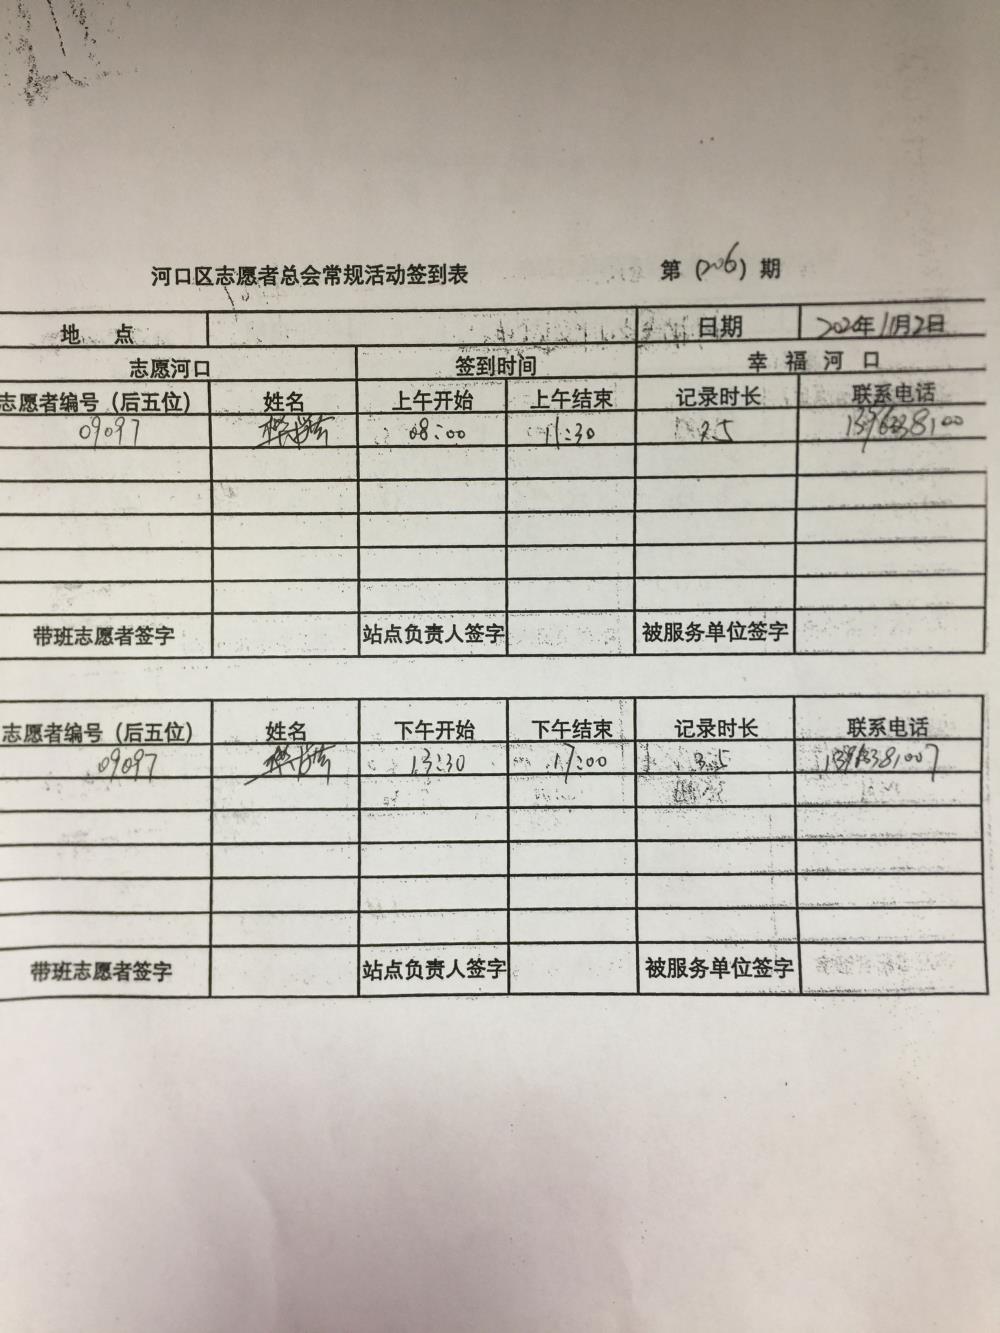 河口区志愿者总会常规活动签到表 第（206）期
地 点 日期 2020年11月2日
志愿河口 签到时间 幸 福 河 口
志愿者编号（后五位） 姓名 上午开始 上午结束 记录时长 联系电话
09097 08:00 11:30 3.5
带班志愿者签字 站点负责人签字 被服务单位签字
志愿者编号（后五位） 姓名 下午开始 下午结束 记录时长 联系电话
09097 13:30 17:00 3.5
带班志愿者签字 站点负责人签字 被服务单位签字